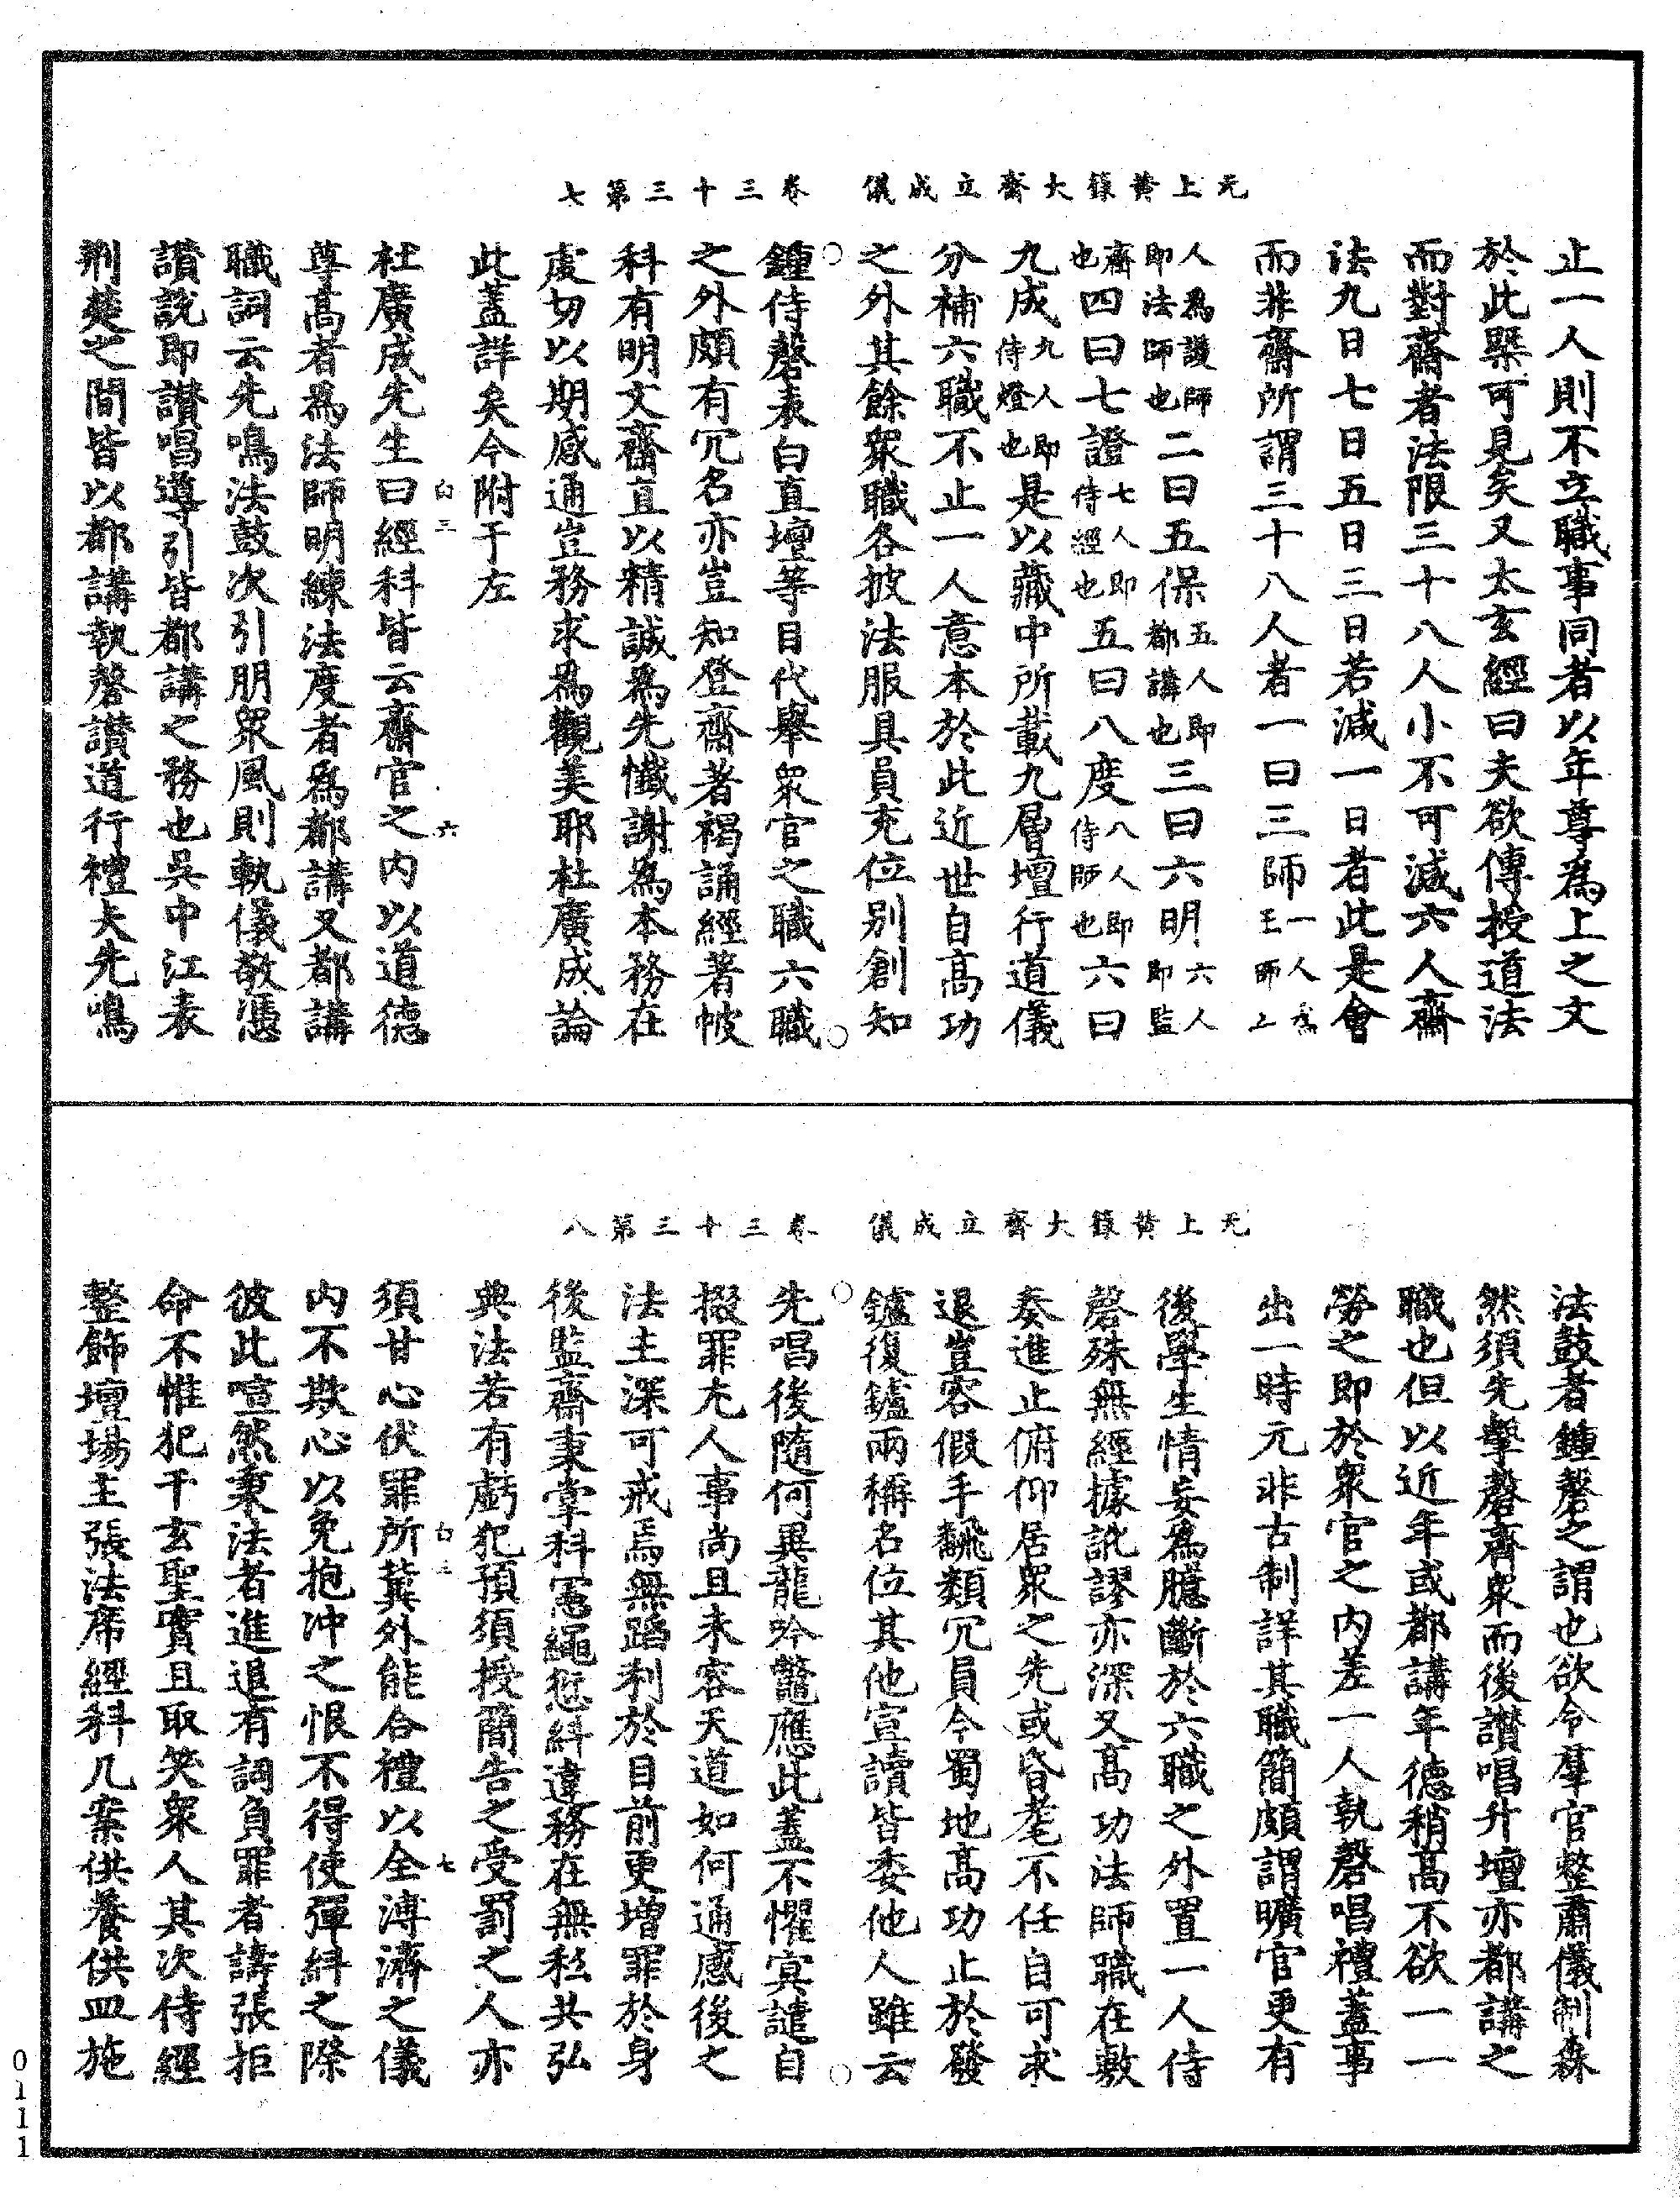 元上黃籙大齋立成儀　卷三十三第七
止一人則不立職事同者以年尊為上之文
於此槩可見矣又太玄經曰夫欲傳授道法
而對齋者法限三十八人小不可減六人齋
法九日七日五日三日若減一日者此是會
而非齋所謂三十八人者一曰三師一人為王師上
人為護師即法師也二曰五保五人即都講也三曰六明六人即監
齋也四曰七證七人即侍經也五曰八度八人即侍師也六曰
九成九人即侍燈也是以藏中所載九層壇行道儀
分補六職不止一人意本於此近世自高功
之外其餘眾職各披法服具員充位別創知
鐘侍磬表白直壇等目代舉眾官之職六職
之外頗有冗名亦豈知登齋著褐誦經著帔
科有明文齋直以精誠為先懺謝為本務在
虔切以期感通豈務求為觀美耶杜廣成論
此蓋詳矣今附于左
白三　六
杜廣成先生曰經科皆云齋官之內以道德
尊高者為法師明練法度者為都講又都講
職詞云先鳴法鼓次引朋眾風則軌儀敬憑
讚說即讚唱導引皆都講之務也吳中江表
荊楚之間皆以都講執磬讚道行禮夫先鳴
元上黃籙大齋立成儀　卷三十三第八
法鼓者鐘磬之謂也欲令羣官整肅儀制森
然須先擊磬齊衆而後讚唱升壇亦都講之
職也但以近年或都講年德稍高不欲一一
勞之即於眾官之內差一人執磬唱禮蓋事
出一時元非古制詳其職簡頗謂曠官更有
後學生情妄為臆斷於六職之外置一人侍
磬殊無經據訛謬亦深又高功法師職在敷
奏進止俯仰居眾之先或昏耄不任自可求
退豈容假手翻類冗員今蜀地高功止於發
鑪復鑪兩稱名位其他宣讀皆委他人雖云
先唱後隨何異龍吟鼈應此蓋不懼冥譴自
掇罪尤人事尚且未容天道如何通感後之
法主深可戒焉無蹈利於目前更增罪於身
後監齋秉掌科憲繩愆糾違務在無私共弘
典法若有虧犯預須授簡告之受罰之人亦
白三　七
須甘心伏罪所冀外能合禮以全溥濟之儀
內不欺心以免抱沖之恨不得使彈糾之際
彼此喧然秉法者進退有詞負罪者譸張拒
命不惟犯干玄聖實且取笑衆人其次侍經
整飾壇場主張法席經科几案供養供皿施
0111